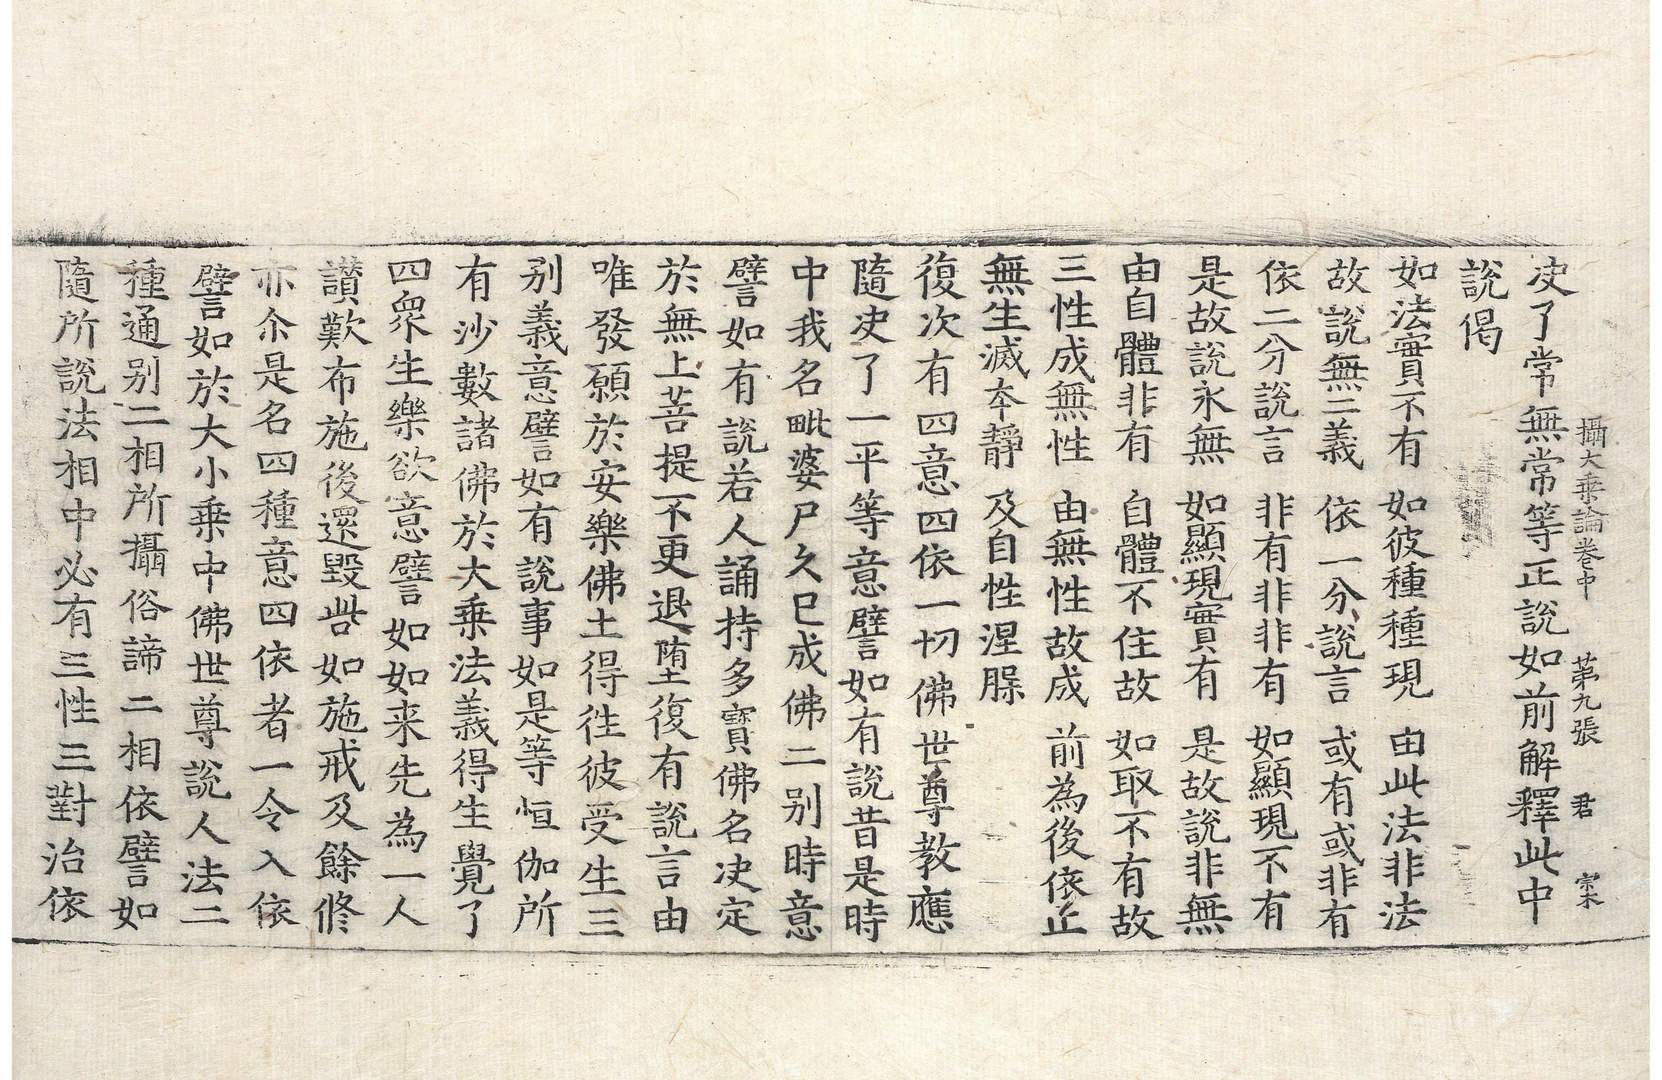 攝大乗論卷中 第九張 君 宗木
决了常無常等正說如前解釋此中
說偈
如法實不有 如彼種種現 由此法非法
故說無二義 依一分說言 或有或非有
依二分說言 非有非非有 如顯現不有
是故說永無 如顯現實有 是故說非無
由自體非有 自體不住故 如取不有故
三性成無性 由無性故成 前為後依止
無生滅夲靜 及自性涅槃
復次有四意四依一切佛世尊教應
隨决了一平等意譬如有說昔是時
中我名毗婆尸久已成佛二别時意
譬如有說若人誦持多寶佛名决定
於無上菩提不更退墮復有說言由
唯發願於安樂佛土得徃彼受生三
别義意譬如有說事如是等恒伽所
有沙數諸佛於大乗法義得生覺了
四衆生樂欲意譬如如来先為一人
讃歎布施後還毀呰如施戒及餘修
亦尒是名四種意四依者一令入依
譬如於大小乗中佛世尊說人法二
種通别二相所攝俗諦二相依譬如
隨所說法相中必有三性三對治依